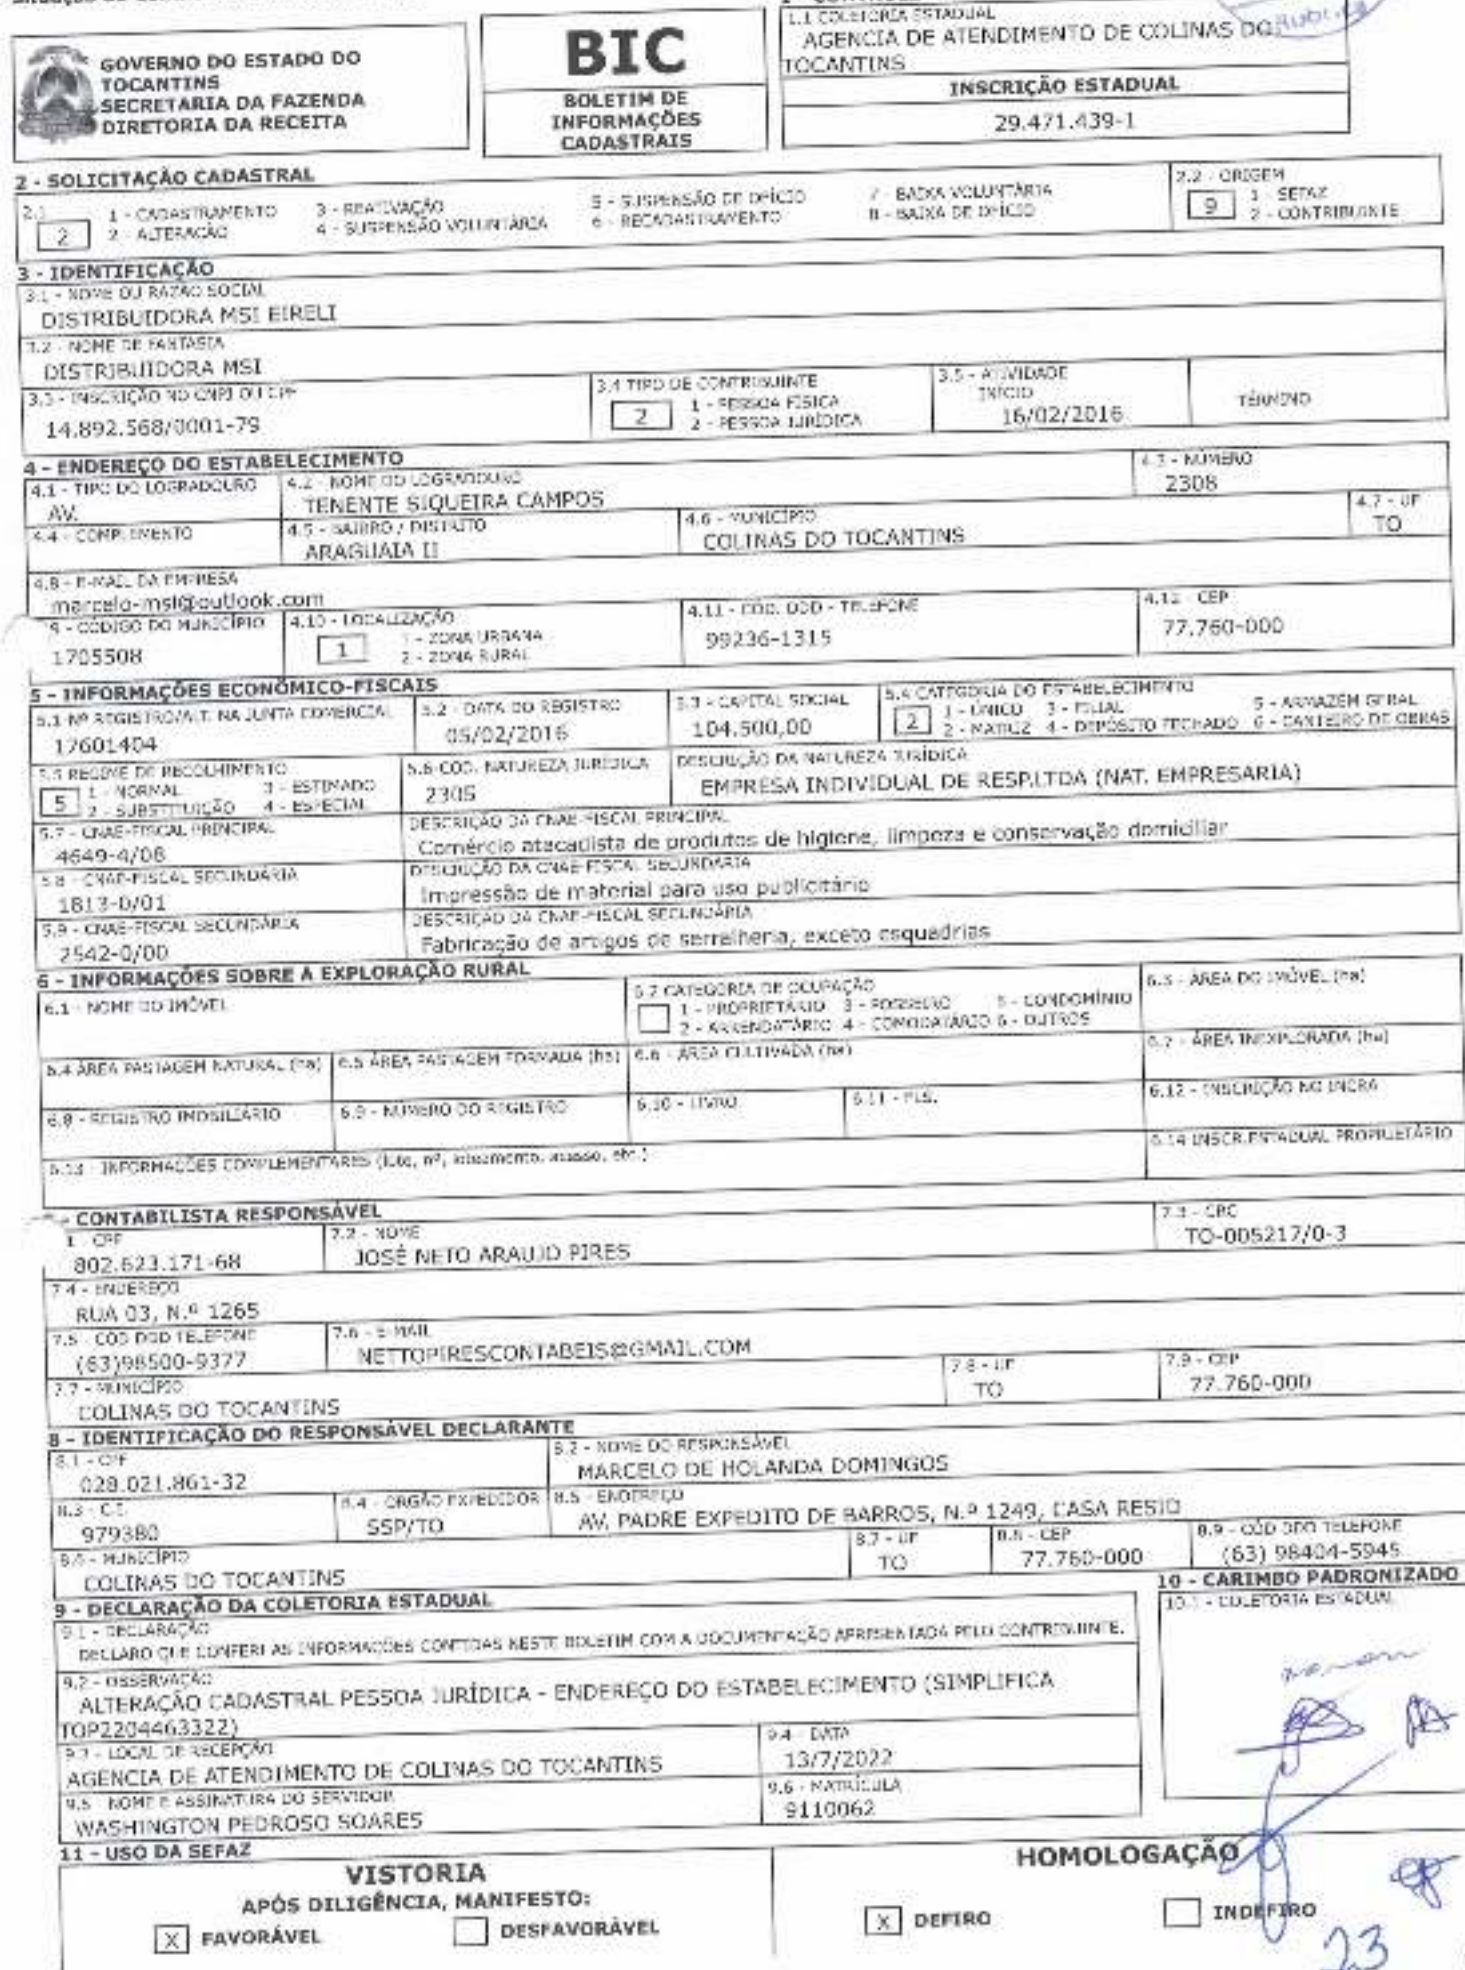 1.1 COLETORIA ESTADUAL
AGENCIA DE ATENDIMENTO DE COLINAS DO
TOCANTINS
GOVERNO DO ESTADO DO
TOCANTINS
SECRETARIA DA FAZENDA
DIRETORIA DA RECEITA
BIC
BOLETIM DE
INFORMAÇÕES
CADASTRAIS
INSCRIÇÃO ESTADUAL
29.471.439-1
2 - SOLICITAÇÃO CADASTRAL
2.1
2
1 - CADASTRAMENTO
2 - ALTERAÇÃO
3 - REATIVAÇÃO
4 - SUSPENSÃO VOLUNTÁRIA
5 - SUSPENSÃO DE OFÍCIO
6 - RECADASTRAMENTO
7 - BAIXA VOLUNTÁRIA
8 - BAIXA DE OFÍCIO
2.2 - ORIGEM
9
1 - SEFAZ
2 - CONTRIBUINTE
3 - IDENTIFICAÇÃO
3.1 - NOME OU RAZÃO SOCIAL
DISTRIBUIDORA MSI EIRELI
3.2 - NOME DE FANTASIA
DISTRIBUIDORA MSI
3.3 - INSCRIÇÃO NO CNPJ OU CPF
14.892.568/0001-79
3.4 TIPO DE CONTRIBUINTE
2
1 - PESSOA FÍSICA
2 - PESSOA JURÍDICA
3.5 - ATIVIDADE
INÍCIO
16/02/2016
TÉRMINO
4 - ENDEREÇO DO ESTABELECIMENTO
4.1 - TIPO DO LOGRADOURO
AV.
4.2 - NOME DO LOGRADOURO
TENENTE SIQUEIRA CAMPOS
4.3 - NÚMERO
2308
4.4 - COMPLEMENTO
4.5 - BAIRRO / DISTRITO
ARAGUAIA II
4.6 - MUNICÍPIO
COLINAS DO TOCANTINS
4.7 - UF
TO
4.8 - E-MAIL DA EMPRESA
marcelo-msi@outlook.com
9 - CÓDIGO DO MUNICÍPIO
1705508
4.10 - LOCALIZAÇÃO
1
1 - ZONA URBANA
2 - ZONA RURAL
4.11 - CÓD. DDD - TELEFONE
99236-1315
4.12 - CEP
77.760-000
5 - INFORMAÇÕES ECONÔMICO-FISCAIS
5.1-Nº REGISTRO/ALT. NA JUNTA COMERCIAL
17601404
5.2 - DATA DO REGISTRO
05/02/2016
5.3 - CAPITAL SOCIAL
104.500,00
5.4 CATEGORIA DO ESTABELECIMENTO
2
1 - ÚNICO 3 - FILIAL 5 - ARMAZÉM GERAL
2 - MATRIZ 4 - DEPÓSITO FECHADO 6 - CANTEIRO DE OBRAS
5.5 REGIME DE RECOLHIMENTO
5
1 - NORMAL 3 - ESTIMADO
2 - SUBSTITUIÇÃO 4 - ESPECIAL
5.6-COD. NATUREZA JURÍDICA
2305
DESCRIÇÃO DA NATUREZA JURÍDICA
EMPRESA INDIVIDUAL DE RESP.LTDA (NAT. EMPRESARIA)
5.7 - CNAE-FISCAL PRINCIPAL
4649-4/08
DESCRIÇÃO DA CNAE-FISCAL PRINCIPAL
Comércio atacadista de produtos de higiene, limpeza e conservação domiciliar
5.8 - CNAE-FISCAL SECUNDÁRIA
1813-0/01
DESCRIÇÃO DA CNAE-FISCAL SECUNDÁRIA
Impressão de material para uso publicitário
5.9 - CNAE-FISCAL SECUNDÁRIA
2542-0/00
DESCRIÇÃO DA CNAE-FISCAL SECUNDÁRIA
Fabricação de artigos de serralheria, exceto esquadrias
6 - INFORMAÇÕES SOBRE A EXPLORAÇÃO RURAL
6.1 - NOME DO IMÓVEL
6.2 CATEGORIA DE OCUPAÇÃO
1 - PROPRIETÁRIO 3 - POSSEIRO 5 - CONDOMÍNIO
2 - ARRENDATÁRIO 4 - COMODATÁRIO 6 - OUTROS
6.3 - ÁREA DO IMÓVEL (ha)
6.4 ÁREA PASTAGEM NATURAL (ha)
6.5 ÁREA PASTAGEM FORMADA (ha)
6.6 - ÁREA CULTIVADA (ha)
6.7 - ÁREA INEXPLORADA (ha)
6.8 - REGISTRO IMOBILIÁRIO
6.9 - NÚMERO DO REGISTRO
6.10 - LIVRO
6.11 - FLS.
6.12 - INSCRIÇÃO NO INCRA
6.13 - INFORMAÇÕES COMPLEMENTARES (lote, nº, loteamento, acesso, etc.)
6.14 INSCR.ESTADUAL PROPRIETÁRIO
- CONTABILISTA RESPONSÁVEL
1 - CPF
802.623.171-68
7.2 - NOME
JOSÉ NETO ARAUJO PIRES
7.3 - CRC
TO-005217/0-3
7.4 - ENDEREÇO
RUA 03, N.º 1265
7.5 - COD DDD TELEFONE
(63)98500-9377
7.6 - E-MAIL
NETTOPIRESCONTABEIS@GMAIL.COM
7.7 - MUNICÍPIO
COLINAS DO TOCANTINS
7.8 - UF
TO
7.9 - CEP
77.760-000
8 - IDENTIFICAÇÃO DO RESPONSÁVEL DECLARANTE
8.1 - CPF
028.021.861-32
8.2 - NOME DO RESPONSÁVEL
MARCELO DE HOLANDA DOMINGOS
8.3 - C.I.
979380
8.4 - ORGÃO EXPEDIDOR
SSP/TO
8.5 - ENDEREÇO
AV. PADRE EXPEDITO DE BARROS, N.º 1249, CASA RESID
8.6 - MUNICÍPIO
COLINAS DO TOCANTINS
8.7 - UF
TO
8.8 - CEP
77.760-000
8.9 - CÓD DDD TELEFONE
(63) 98404-5945
9 - DECLARAÇÃO DA COLETORIA ESTADUAL
9.1 - DECLARAÇÃO
DECLARO QUE CONFERI AS INFORMAÇÕES CONTIDAS NESTE BOLETIM COM A DOCUMENTAÇÃO APRESENTADA PELO CONTRIBUINTE.
10 - CARIMBO PADRONIZADO
10.1 - COLETORIA ESTADUAL
9.2 - OBSERVAÇÃO
ALTERAÇÃO CADASTRAL PESSOA JURÍDICA - ENDEREÇO DO ESTABELECIMENTO (SIMPLIFICA
TOP2204463322)
9.3 - LOCAL DE RECEPÇÃO
AGENCIA DE ATENDIMENTO DE COLINAS DO TOCANTINS
9.4 - DATA
13/7/2022
9.5 - NOME E ASSINATURA DO SERVIDOR
WASHINGTON PEDROSO SOARES
9.6 - MATRÍCULA
9110062
11 - USO DA SEFAZ
VISTORIA
APÓS DILIGÊNCIA, MANIFESTO:
X FAVORÁVEL
DESFAVORÁVEL
HOMOLOGAÇÃO
X DEFIRO
INDEFIRO
23